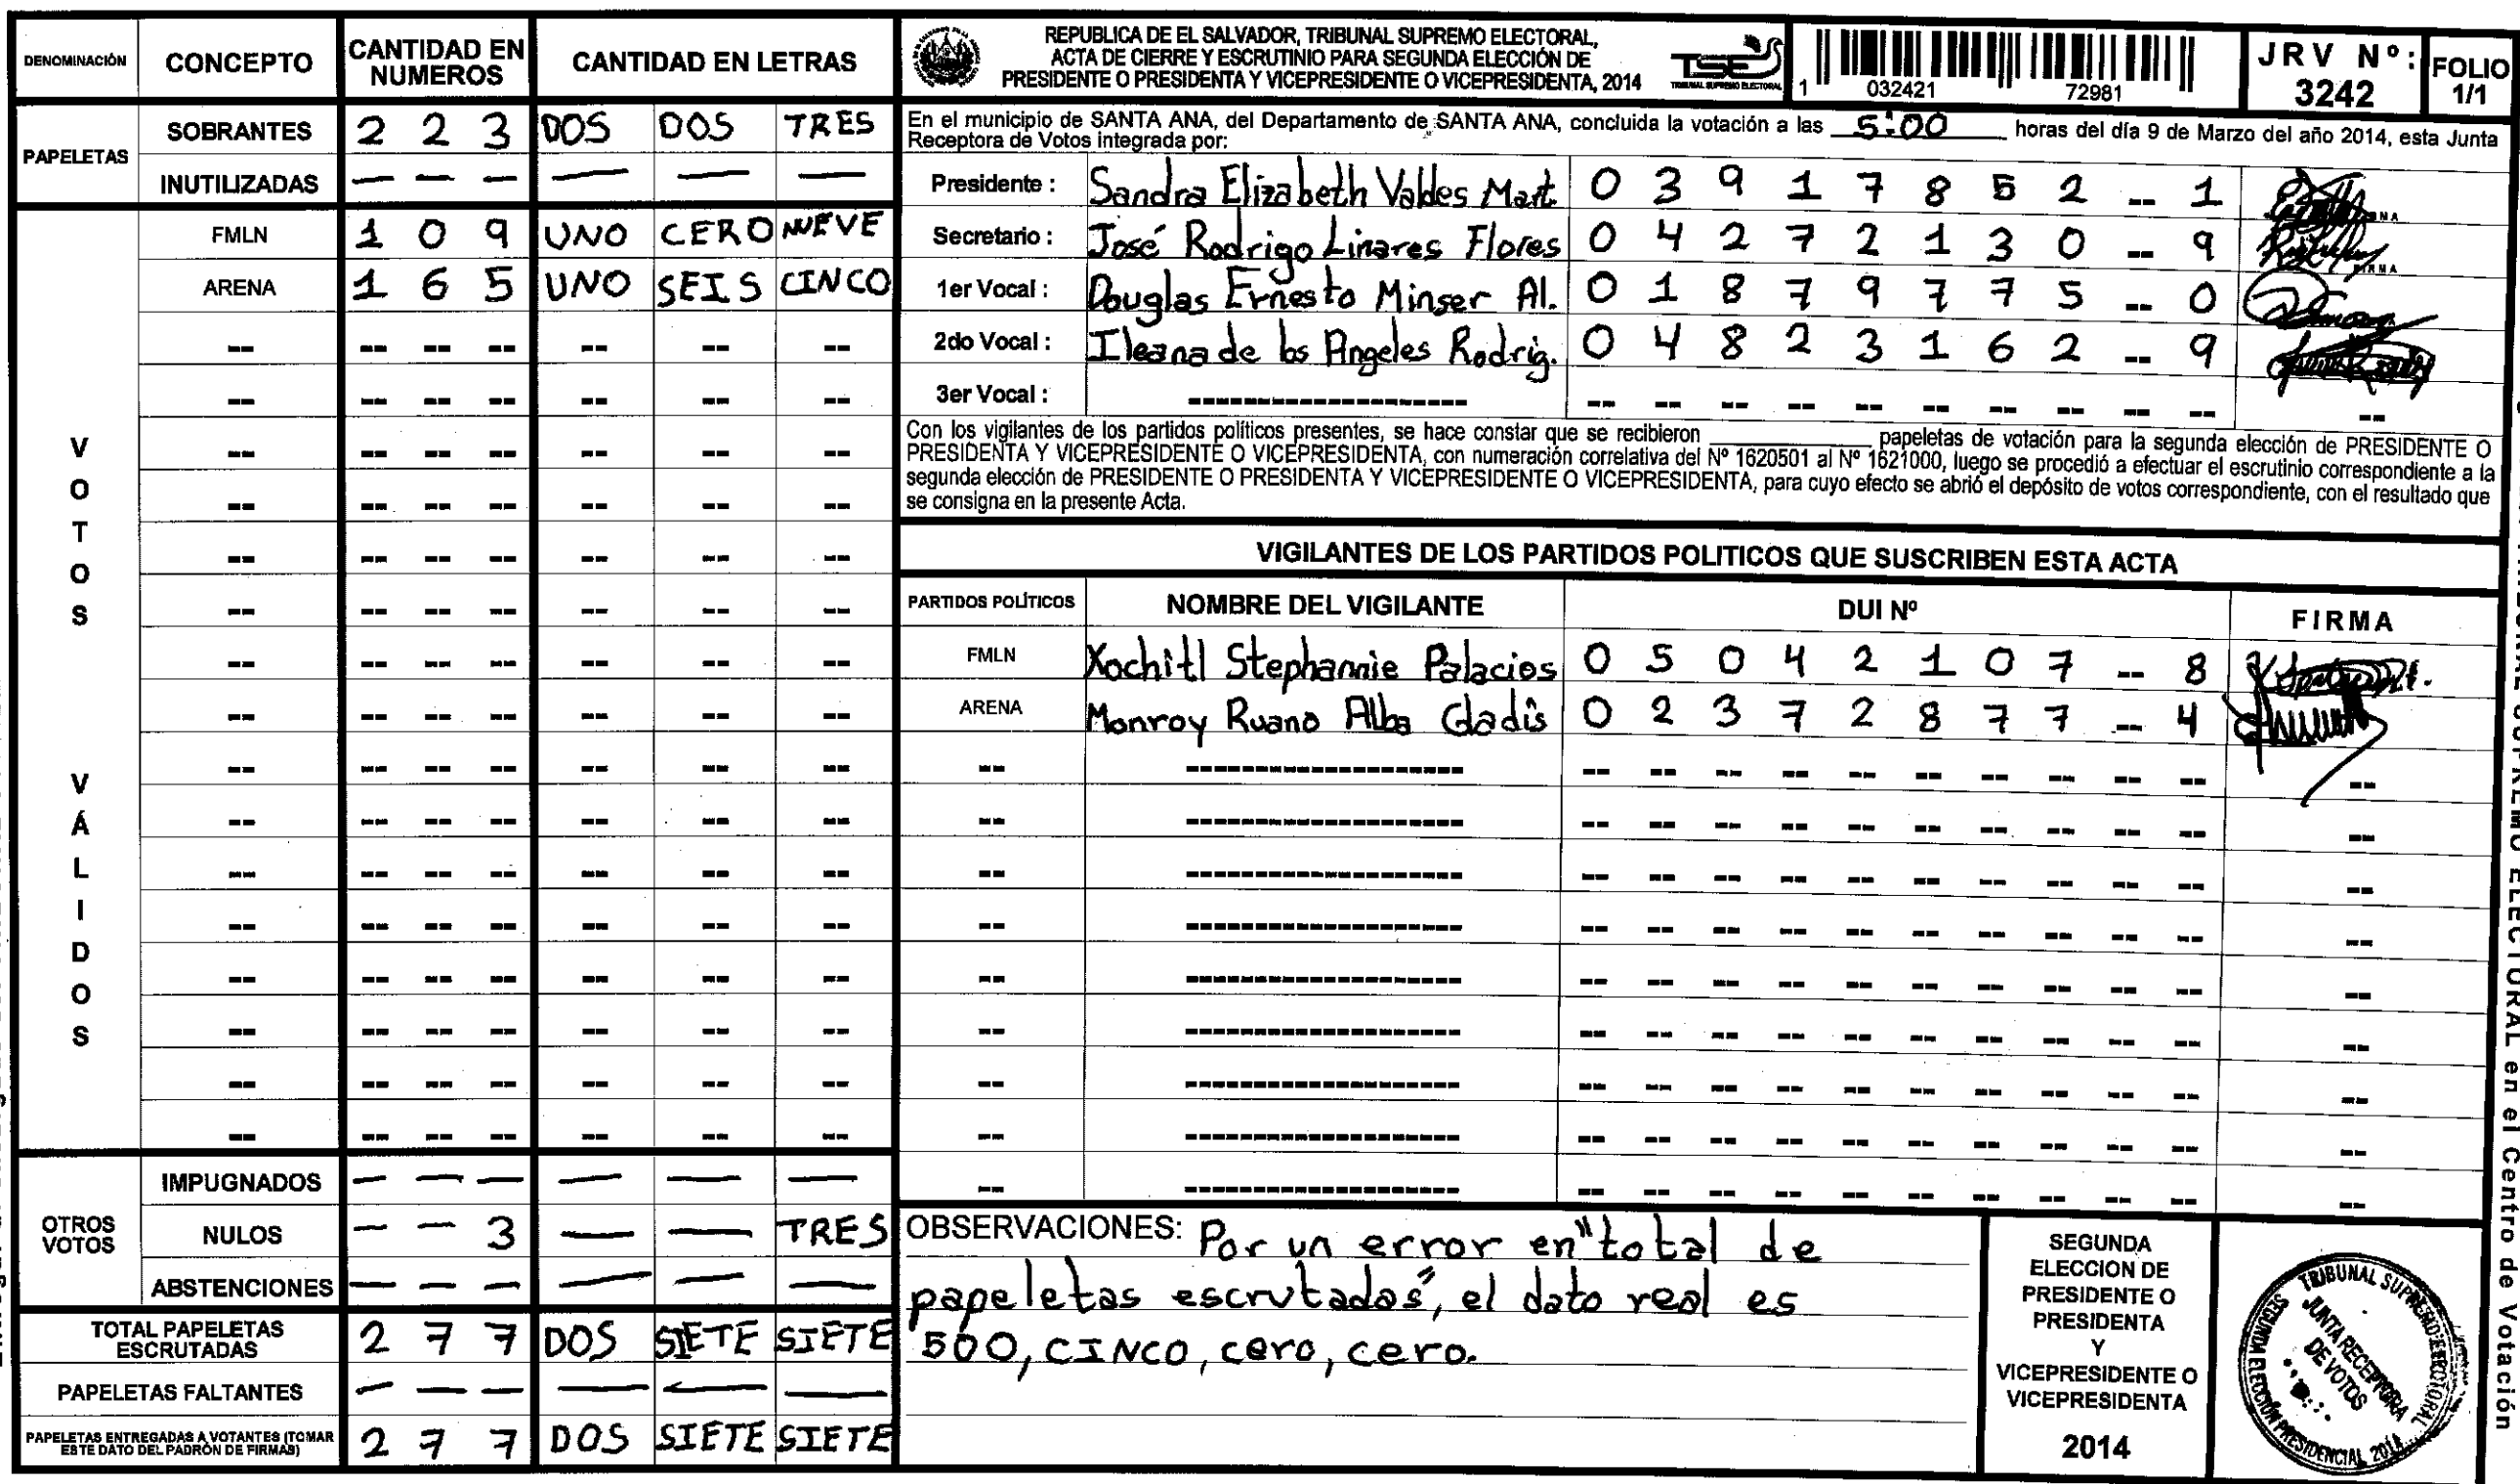 DENOMINACIÓN CONCEPTO CANTIDAD EN NUMEROS CANTIDAD EN LETRAS
PAPELETAS
SOBRANTES 2 2 3 DOS DOS TRES
INUTILIZADAS — — — — — —
VOTOS VÁLIDOS
FMLN 1 0 9 UNO CERO NUEVE
ARENA 1 6 5 UNO SEIS CINCO
OTROS VOTOS
IMPUGNADOS — — — — — —
NULOS — — 3 — — TRES
ABSTENCIONES — — — — — —
TOTAL PAPELETAS ESCRUTADAS 2 7 7 DOS SIETE SIETE
PAPELETAS FALTANTES — — — — — —
PAPELETAS ENTREGADAS A VOTANTES (TOMAR ESTE DATO DEL PADRÓN DE FIRMAS) 2 7 7 DOS SIETE SIETE
REPUBLICA DE EL SALVADOR, TRIBUNAL SUPREMO ELECTORAL,
ACTA DE CIERRE Y ESCRUTINIO PARA SEGUNDA ELECCIÓN DE
PRESIDENTE O PRESIDENTA Y VICEPRESIDENTE O VICEPRESIDENTA, 2014
TSE
TRIBUNAL SUPREMO ELECTORAL
1 032421 72981
JRV Nº: 3242
FOLIO 1/1
En el municipio de SANTA ANA, del Departamento de SANTA ANA, concluida la votación a las 5:00 horas del día 9 de Marzo del año 2014, esta Junta
Receptora de Votos integrada por:
Presidente : Sandra Elizabeth Valdes Mart. 0 3 9 1 7 8 5 2 -- 1
Secretario : José Rodrigo Linares Flores 0 4 2 7 2 1 3 0 -- 9
1er Vocal : Douglas Ernesto Minser Al. 0 1 8 7 9 7 7 5 -- 0
2do Vocal : Ileana de los Angeles Rodrig. 0 4 8 2 3 1 6 2 -- 9
3er Vocal :
Con los vigilantes de los partidos políticos presentes, se hace constar que se recibieron ____ papeletas de votación para la segunda elección de PRESIDENTE O
PRESIDENTA Y VICEPRESIDENTE O VICEPRESIDENTA, con numeración correlativa del Nº 1620501 al Nº 1621000, luego se procedió a efectuar el escrutinio correspondiente a la
segunda elección de PRESIDENTE O PRESIDENTA Y VICEPRESIDENTE O VICEPRESIDENTA, para cuyo efecto se abrió el depósito de votos correspondiente, con el resultado que
se consigna en la presente Acta.
VIGILANTES DE LOS PARTIDOS POLITICOS QUE SUSCRIBEN ESTA ACTA
PARTIDOS POLÍTICOS NOMBRE DEL VIGILANTE DUI Nº FIRMA
FMLN Xochitl Stephannie Palacios 0 5 0 4 2 1 0 7 -- 8
ARENA Monroy Ruano Alba Gladis 0 2 3 7 2 8 7 7 -- 4
OBSERVACIONES: Por un error en "total de
papeletas escrutadas", el dato real es
500, CINCO, cero, cero.
SEGUNDA
ELECCION DE
PRESIDENTE O
PRESIDENTA
Y
VICEPRESIDENTE O
VICEPRESIDENTA
2014
TRIBUNAL SUPREMO ELECTORAL
JUNTA RECEPTORA
DE VOTOS
SEGUNDA ELECCIÓN PRESIDENCIAL 2014
SUPREMO ELECTORAL en el Centro de Votación